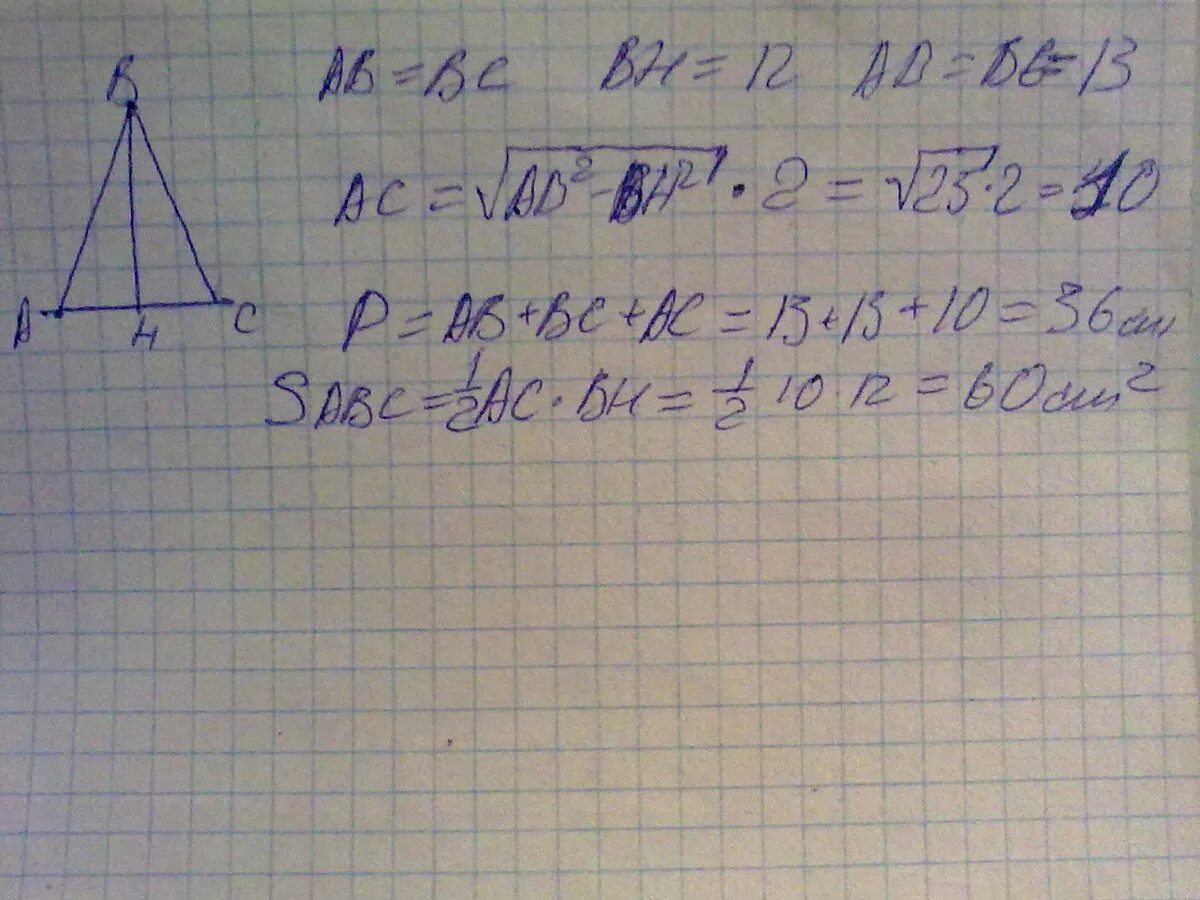 B
A
H
C
AB = BC BH = 12 AB = BC = 13
AC = √(AB² - BH²) · 2 = √25 · 2 = 10
P = AB + BC + AC = 13 + 13 + 10 = 36 см
S ABC = 1/2 AC · BH = 1/2 10 · 12 = 60 см²